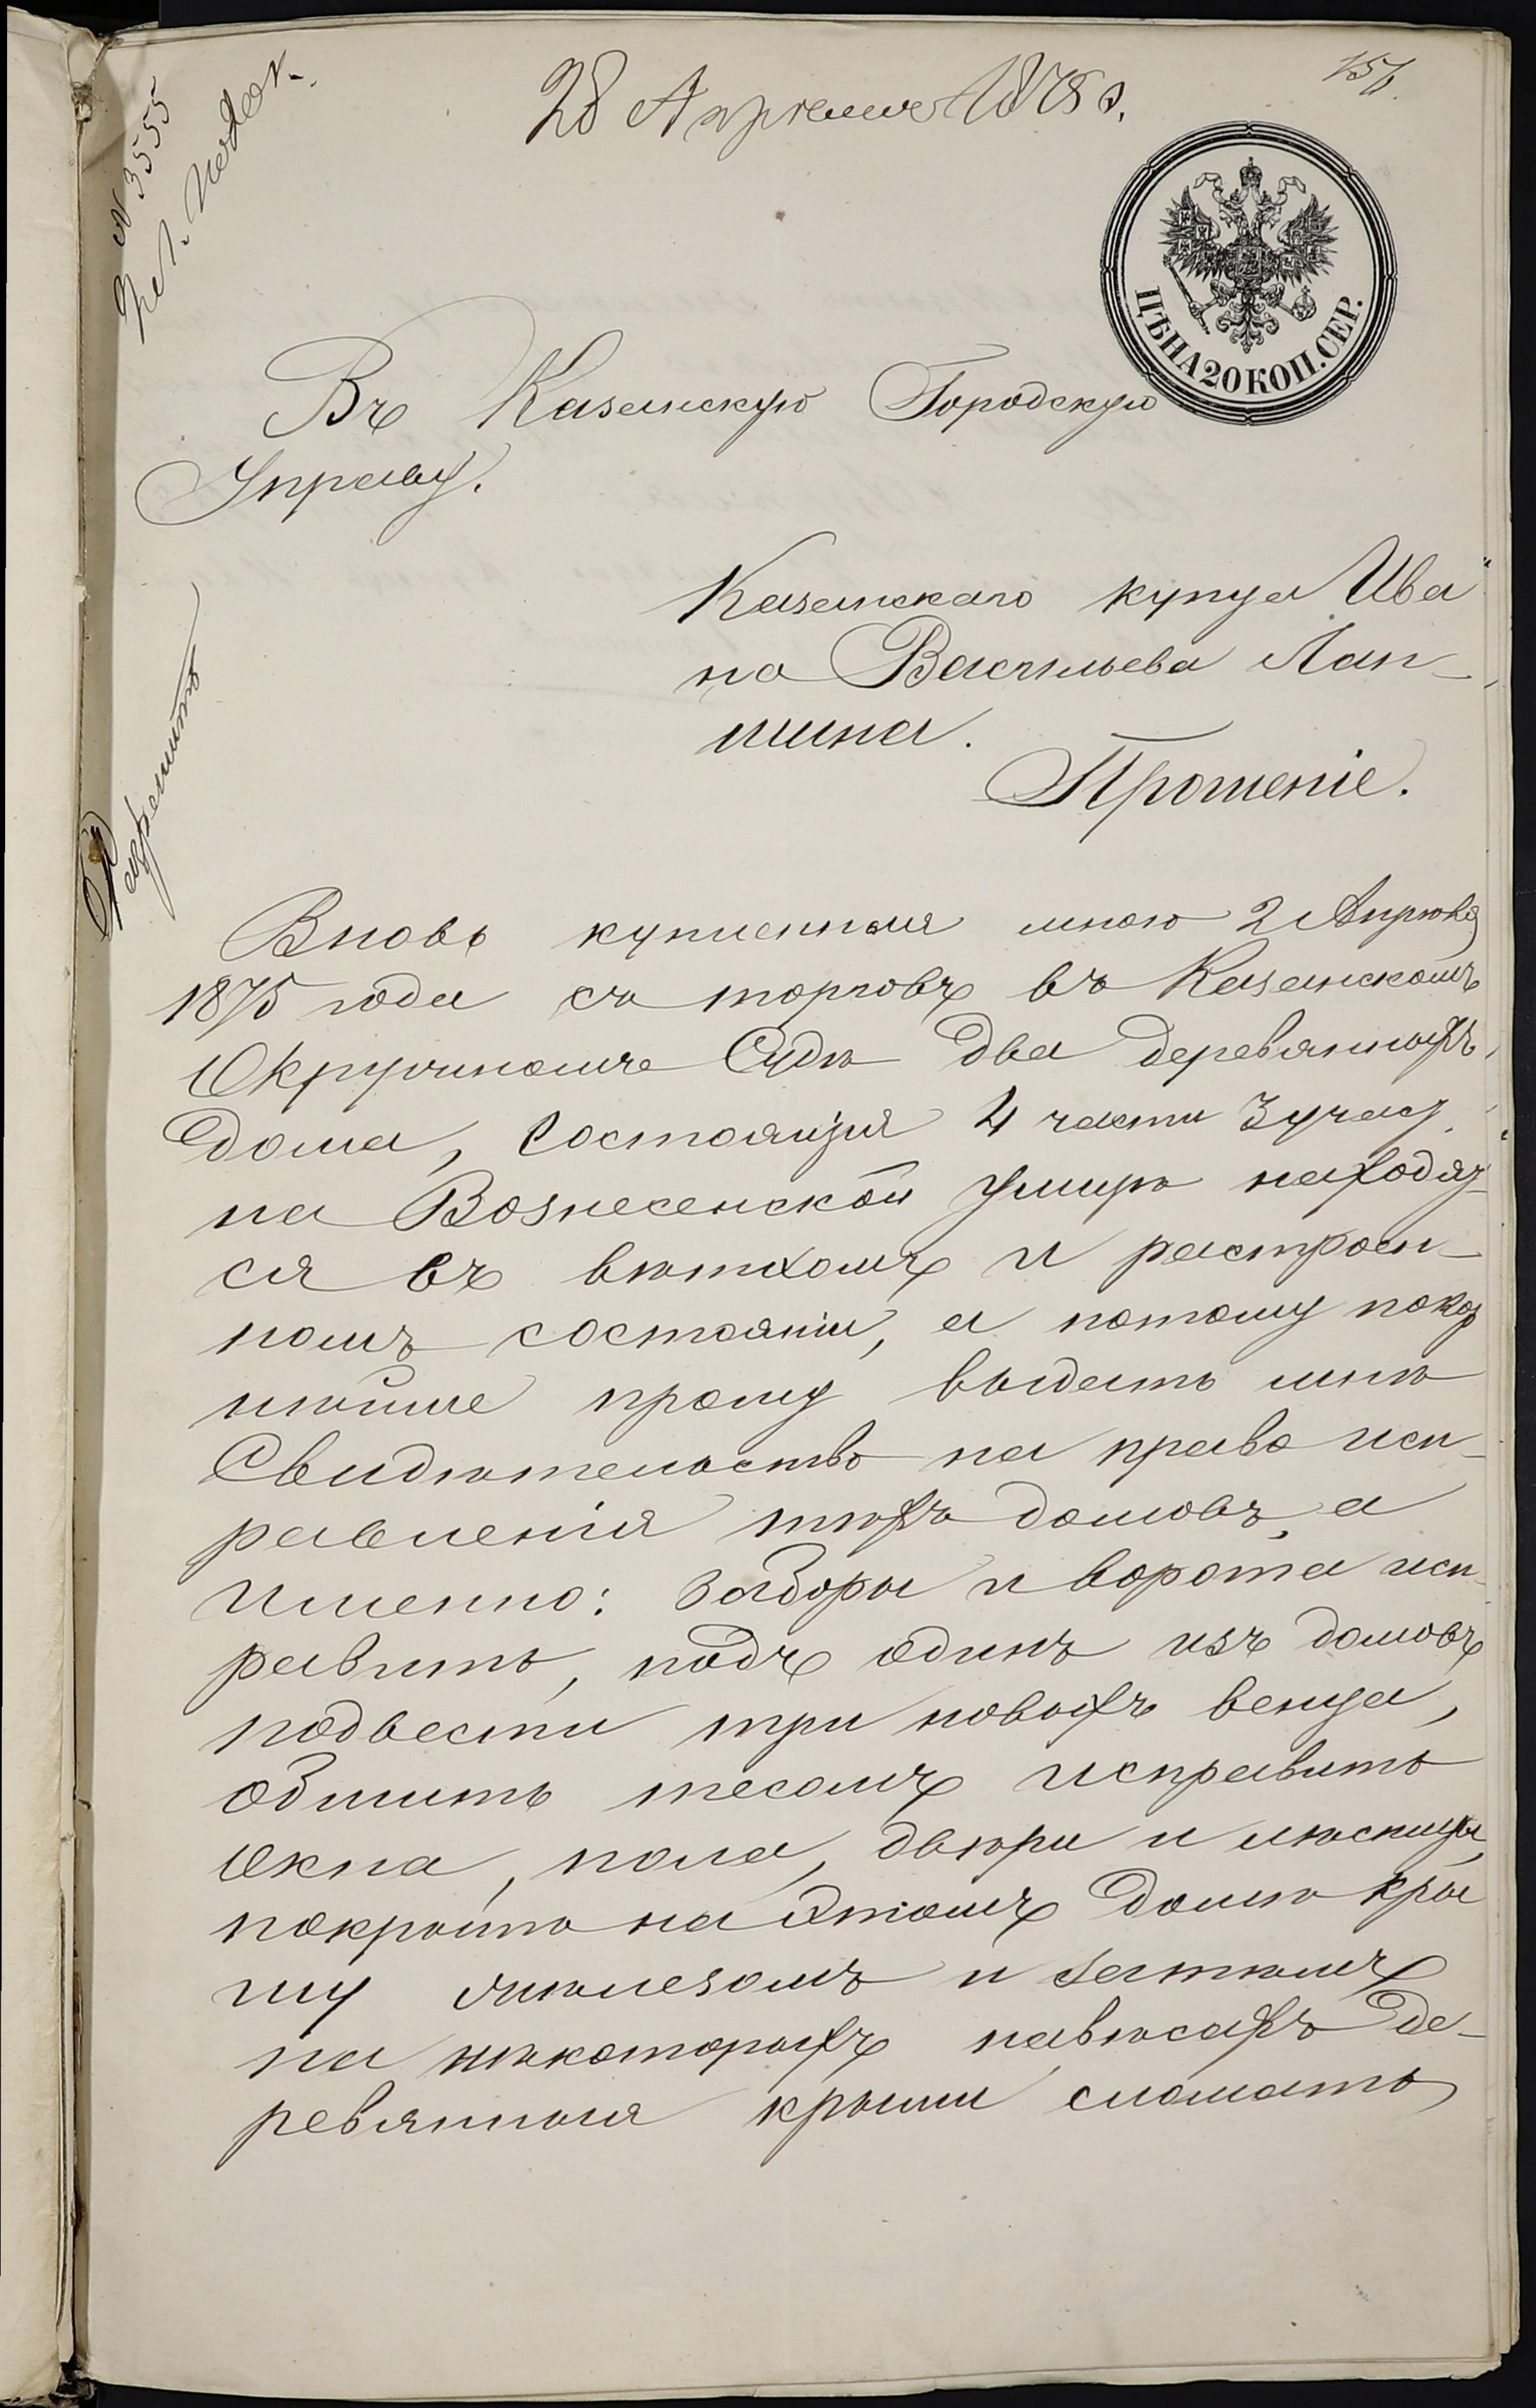 28 Апреля 1875 г.
156.
№ 3555
ЦѢНА 20 КОП. СЕР.
Въ Казанскую Городскую
Управу.
Казанскаго купца Ива
на Васильева Лап-
шина.
Прошеніе.
Разрешить
Вновь купленныя мною 2 Апрѣля
1875 года съ торговъ въ Казанскомъ
Окружномъ Судѣ два деревянныхъ
дома, состоящія 4 части 3 учас.
на Вознесенской улицѣ находят-
ся въ вѣтхомъ и растроен-
номъ состояніи, а потому покор
нѣйше прошу выдать мнѣ
Свидѣтельство на право исп-
равленія тѣхъ домовъ, а
именно: заборы и ворота исп-
равить, подъ одинъ изъ домовъ
подвести три новыхъ венца,
обшить тесомъ исправить
окна, пола, двѣри и лѣсницы,
покрыть на этомъ домѣ кры
шу жѣлезомъ и затѣмъ
на нѣкоторыхъ навѣсахъ де-
ревянныя крыши сломать